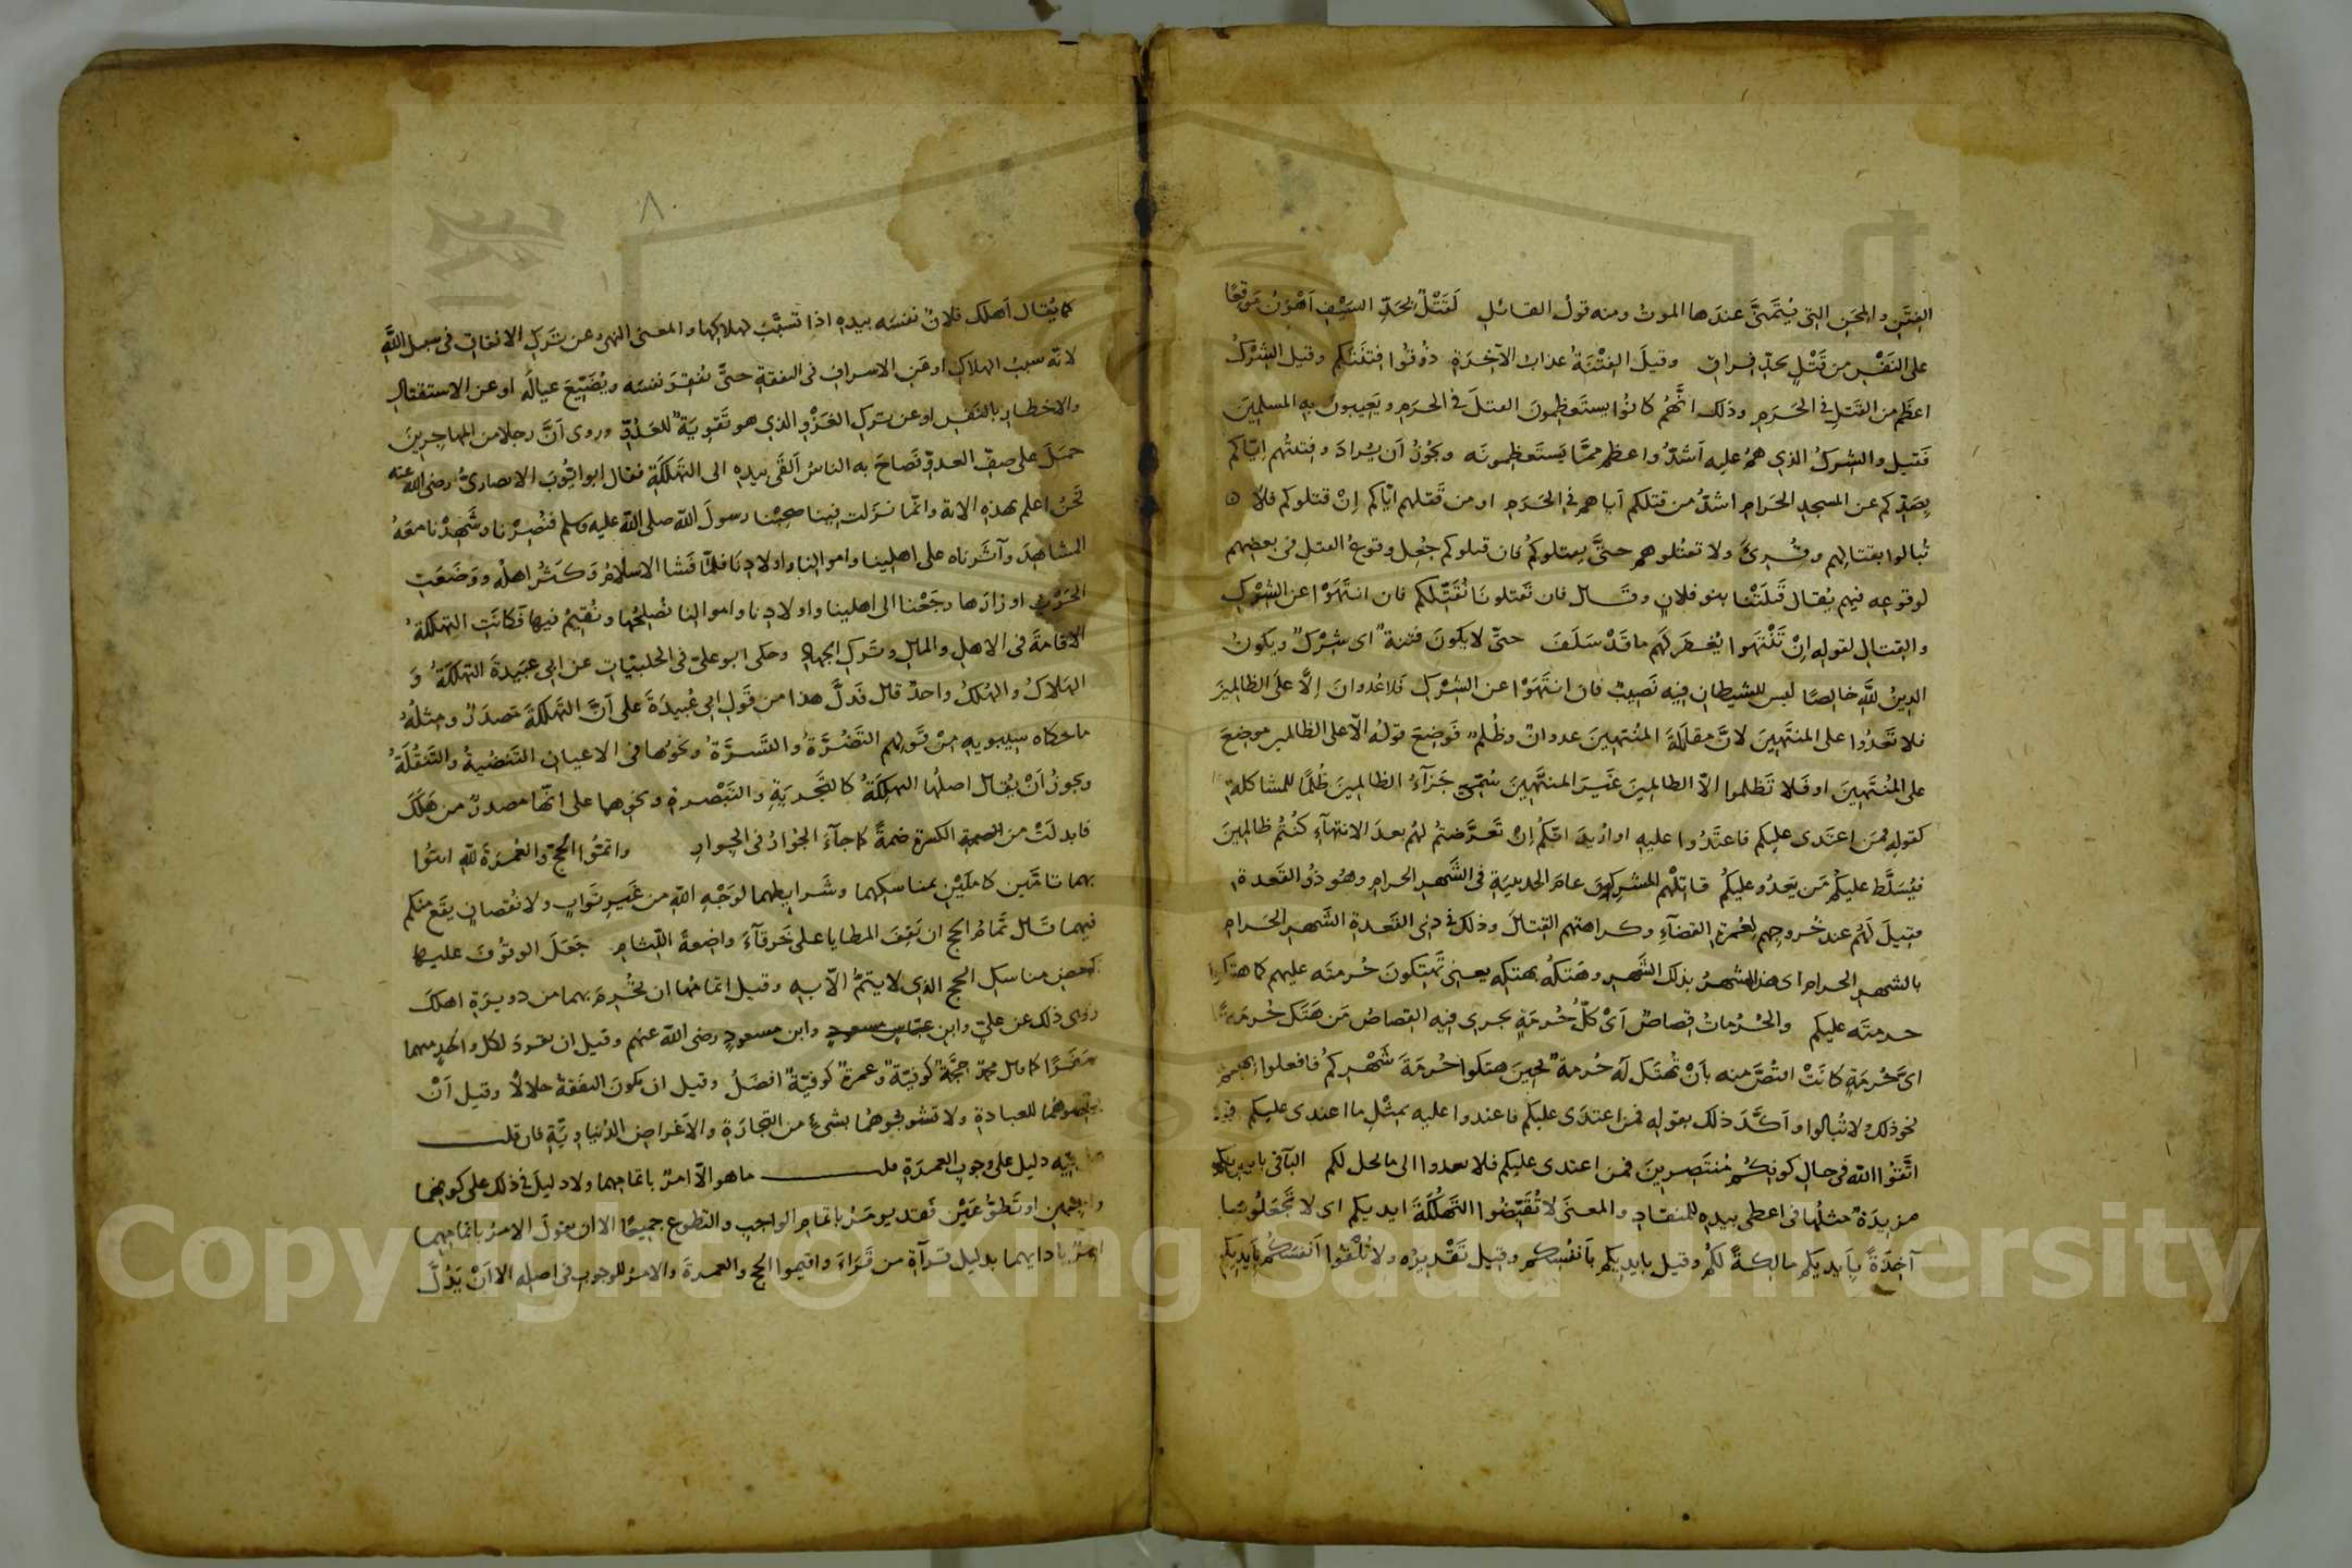 الفِتَنِ والمِحَنِ التي يُتَمَنَّى عندَها الموتُ ومنه قولُ القائلِ لَقَتْلٌ بحَدِّ السَيْفِ أَهْوَنُ مَوْقعًا
على النَفْسِ من قَتْلٍ بحدِّ فِراقِ وقيلَ الفِتْنَةُ عذابُ الآخِرَةِ ذُوقُوا فِتْنَتَكم وقيل الشِرْكُ
اعظَم من القَتلِ في الحَرَمِ وذلك انَّهُم كانُوا يستَعظِمونَ القتلَ في الحرَمِ ويَعِيبونَ به المسلمِينَ
فَقيل والشِركُ الذي هُم عليه اَشَدُّ واعظم ممَّا يَستَعظِمونَه ويجُوزُ اَن يُرادَ وفِتنتُهم إيّاكم
بِصَدِّكم عن المسجدِ الحَرامِ اشدُّ من قتلكم اياهم في الحَرَمِ او من قتلهم ايّاكم اِنْ قتلوكم فلا
تُبالوا بقتالِهم وقُرِئَ ولا تقتُلوهم حتَّى يقتلوكم فان قتلوكم جُعِل وقوعُ القتلِ في بعضهم
لوقوعِه فيهم يُقال قَتَلَتْنا بنو فلانٍ وقال فان تَقتلونَا نُقَتِّلكم فان انتَهَوْا عن الشِرْكِ
والقِتالِ لقولِه اِنْ تَنْتَهوا يُغفَر لَهُم ماقَدْ سَلَفَ حتّى لا يكونَ فتنةٌ اى شِرْكٌ ويكونَ
الدينُ للَّهِ خالِصًا ليس للشيطانِ فيه نَصِيبٌ فان انتَهَوْا عن الشِرْكِ فلا عُدوانَ اِلَّا علَى الظالِمِينَ
فلا تَعْدُوا على المنتَهِينَ لانَّ مقاتَلَةَ المُنْتهِينَ عدوانٌ وظُلمٌ فَوضِعَ قولُه الّا على الظالمين موضِعَ
على المُنتَهِينَ او فَلا تَظلموا الّا الظالمِينَ غَيرَ المنتَهِينَ سُمِّىَ جَزآءُ الظالمِينَ ظُلمًا للمشاكلةِ
كقولِه فمَن اعتَدَى عليكم فاعتَدُوا عليه او اُرِيدَ انّكُم اِنْ تَعَرَّضتُم لهُم بعدَ الانتهآءِ كنُتُم ظالِمِينَ
فيُسَلَّط عليكُم مَن يَعدُو عليكُم قاتَلَهُم المشركونَ عامَ الحديبيَةِ في الشَهرِ الحرامِ وهُو ذُو القَعدة
فقِيلَ لَهُم عندَ خُروجِهم لعُمرةِ القضآءِ وكراهتِهم القِتالَ وذلك في ذِى القَعدةِ الشَهرُ الحَرامُ
بالشهرِ الحرامِ اى هذا الشهرُ بذلك الشَهرِ وهَتكُه بهتكِه يعنى تَهتِكونَ حُرمتَه عليهم كما هتكوا
حرمتَه عليكم والحُرُماتُ قِصاصٌ اَىْ كلُّ حُرمَةٍ يجرى فيه القِصاصُ مَن هَتَكَ حُرمَةً
اىَّ حُرْمَةٍ كانَتْ اقتُصَّ منه بأنْ تُهتَكَ لَهُ حُرمةٌ فحِينَ هتكوا حُرمَةَ شَهْرِكُم فافعلوا بهم
نحو ذلك ولا تُبالوا واَكَّدَ ذلكَ بقولِه فمن اعتدَى عليكم فاعتدوا عليه بمِثْلِ ما اعتدى عليكم
اتَّقُوا اللّه في حالِ كونِكُم مُنتَصِرِينَ فمن اعتدى عليكم فلا تعدوا الى مالا يحل لكم البآ في بايديكم
مزيدَةٌ مثلُها في اعطى بيدِه للمنقادِ والمعنَى لا تُقَبِّضُوا التَهلُكَةَ ايديكم اى لا تَجعَلُوها
آخِذَةً بأَيديكم مالكةً لكُم وقيل بايديكم بأنفُسِكم وقيل تَقْديرُه ولا تُلْقُوا اَنفسَكُم بأيديكم
كما يُقال اَهلَكَ فلانٌ نفسَه بيدِه اذا تسبَّبَ لهلاكِها والمعنى النهى عن تَركِ الانفاقِ في سبيل اللَّهِ
لانّه سببُ الهلاكِ او عَنِ الاسرافِ في النفقةِ حتَّى يُفقِرَ نفسَه ويُضَيِّعَ عيالَه او عن الاستقتالِ
والاخطارِ بالنَفسِ او عن تركِ الغَزْوِ الذي هو تَقوِيَةٌ للعَدُوِّ وروى اَنَّ رجلا من المهاجِرِينَ
حَمَلَ على صفِّ العدوِّ فَصاحَ به الناسُ اَلقَى بيدِه الى التَهلُكَةِ فقال ابو ايّوبَ الانصارىُّ رضى اللّه عنه
نَحنُ اعلم بهذه الاية وانّما نزلت فينا صحِبْنا رسولَ اللّه صلى اللّه عليه وسلم فنَصَرْنا وشَهِدْنا معَهُ
المشاهِدَ وآثَرناه على اهلِينا واموالِنا واولادِنا فلمّا فَشا الاسلامُ وَكَثُر اهلُه ووَضَعَتِ
الحَرْبُ اوزارَها رجَعْنا الى اهلينا واولادِنا واموالنا نُصلِحُها ونُقيمُ فيها فَكانَتِ التهلكةُ
الاقامَةَ في الاهلِ والمالِ وتَركِ الجهادِ وحكى ابو علىّ في الحلبيّاتِ عن ابى عبيدةَ التهلكَةُ وَ
الهَلاكُ والهُلكُ واحدٌ قال فدلَّ هذا من قَولِ ابى عُبيدَةَ على اَنَّ التَهلكَةَ مَصدَرٌ ومِثلُهُ
ما حكاه سيبويهِ مِنْ قَولِهم التَضُرَّةُ والتَسُرَّةُ ونحوُها في الاعيانِ التَنضُبةُ والتَنفُلَةُ
ويجوزُ اَنْ يُقال اصلُها التهلِكَةُ كالتَجرِبَةِ والتَبْصِرةِ ونحوهما على انّها مصدرٌ من هَلَّكَ
فابدلَتْ من الكسرةِ ضمةً كما جآءَ الجُوارُ في الجِوارِ واتمُّوا الحجَّ والعُمرَةَ للّهِ ائتُوا
بهما تامَّين كامِلَيْنِ بمناسكِهما وشَرايطِهما لوَجْهِ اللّهِ من غَيرِ تَوانٍ ولا نُقصانٍ يقَع منكم
فيهما قال تَمامُ الحجِ ان تَقِفَ المطايا على خَرقآءَ واضِعةَ اللِثامِ جَعَلَ الوقُوفَ عليها
كبعضِ مناسكِ الحج الذي لا يتمُّ الّا به وقيل اتمامُهما ان تُحرِمَ بهما من دويرَةِ اهلكَ
رُوىَ ذلك عن علىٍّ وابنِ عبّاسٍ مسعودٍ وابنِ مسعودٍ رضى اللّه عنهم وقيل ان تفرِدَ لكل واحدٍ منهما
سَفَرًا كما قال محمّد حَجَّةٌ كوفيّةٌ وعمرةٌ كوفيّةٌ افضَلُ وقيل ان يكونَ النفقةُ حلالًا وقيل اَنْ
للعبادةِ ولا تشوبوهُما بشىءٍ من التِجارَةِ والاَغراضِ الدُنياوِيَّةِ فان قلت
فيه دليل على وجوبِ العمرَةِ قلت ما هو الّا امرٌ باتمامِهما ولا دليلَ في ذلك على كونهما
واجبَينِ او تَطوُّعَيْنِ فقد يومَرُ باتمامِ الواجبِ والتطوع جميعًا الا ان نقولَ الامرُ باتمامِهما
امرٌ بادايهما بدليل قرآةِ من قَرَاءَ واقيموا الحج والعمرةَ والامرُ للوجوبِ في اصلِه الا اَنْ يَدُلَّ